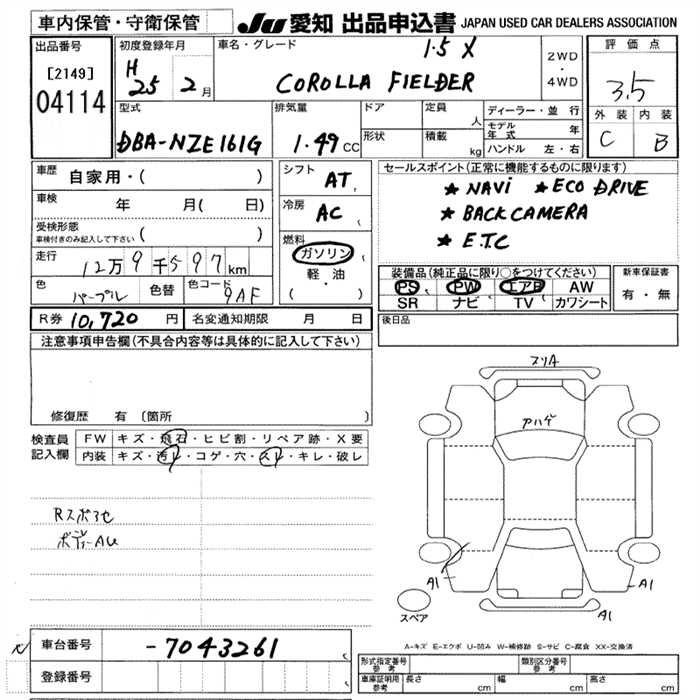 車内保管・守衛保管
JU 愛知 出品申込書 JAPAN USED CAR DEALERS ASSOCIATION
出品番号
[2149]
04114
初度登録年月
H 25 年 2 月
車名・グレード
1.5 X
COROLLA FIELDER
2WD
・
4WD
評価点
3.5
外装 内装
C B
型式
DBA-NZE161G
排気量
1.49 CC
ドア
形状
定員 人
積載 kg
ディーラー・並行
モデル年式 年
ハンドル 左・右
車歴
自家用・( )
車検 年 月( 日)
受検形態
車検付きのみ記入して下さい ( )
走行
12万9千597km
色
パープル
色替
色コード
9AF
シフト
AT
冷房
AC
燃料
ガソリン
軽・油
( )
セールスポイント(正常に機能するものに限ります)
★ NAVI ★ ECO DRIVE
★ BACK CAMERA
★ E.T.C
装備品(純正品に限り○をつけてください)
PS PW エアB AW
SR ナビ TV カワシート
新車保証書
有・無
R券 10,720 円 名変通知期限 月 日
後日品
注意事項申告欄(不具合内容等は具体的に記入して下さい)
修復歴 有(箇所
検査員
記入欄
FW キズ・飛石・ヒビ割・リペア跡・X要
内装 キズ・汚レ・コゲ・穴・スレ・キレ・破レ
Rスポ3セ
ボディーAU
スリA
アハゲ
A1
A1
スペア
A-キズ E-エクボ U-凹み W-補修跡 S-サビ C-腐食 XX-交換済
車台番号 -7043261
登録番号
形式指定番号
参考
類別区分番号
参考
車庫証明用
参考
長さ cm 幅 cm 高さ cm